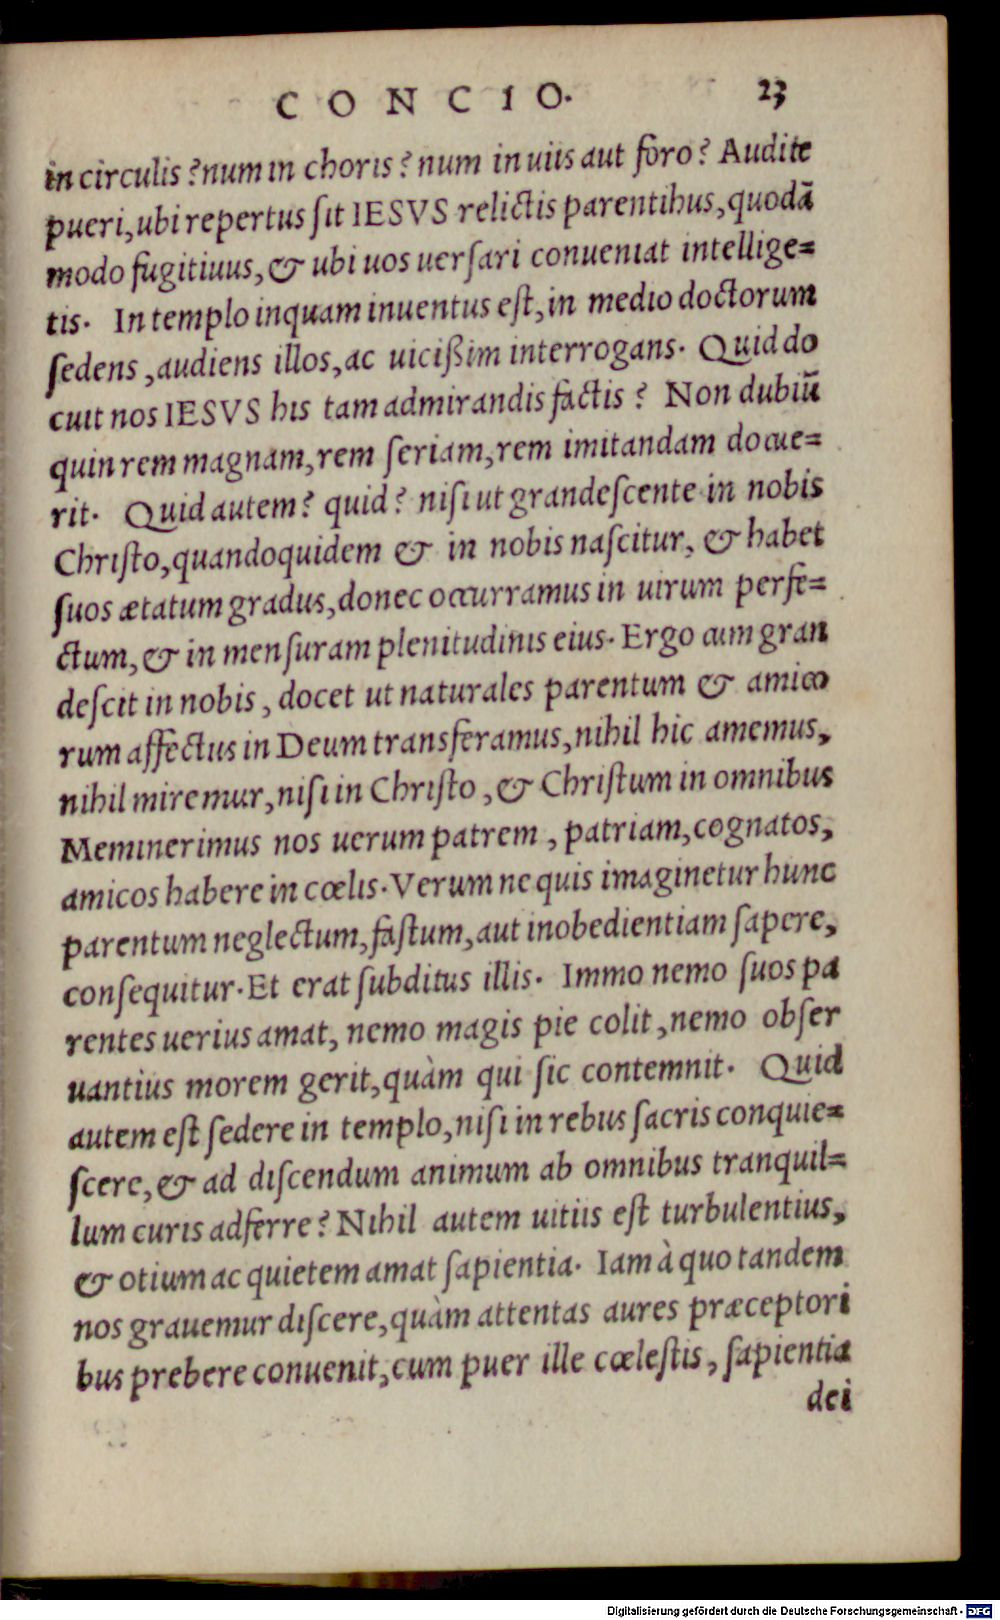 CONCIO. 23
in circulis? num in choris? num in uiis aut foro? Audite
pueri, ubi repertus ſit IESVS relictis parentibus, quodā
modo fugitiuus, & ubi uos uerſari conueniat intellige=
tis. In templo inquam inuentus eſt, in medio doctorum
ſedens, audiens illos, ac uiciſſim interrogans. Quid do
cuit nos IESVS his tam admirandis factis? Non dubiū
quin rem magnam, rem ſeriam, rem imitandam docue=
rit. Quid autem? quid? niſi ut grandeſcente in nobis
Chriſto, quandoquidem & in nobis naſcitur, & habet
ſuos ætatum gradus, donec occurramus in uirum perfe=
ctum, & in menſuram plenitudinis eius. Ergo cum gran
deſcit in nobis, docet ut naturales parentum & amico
rum affectus in Deum transferamus, nihil hic amemus,
nihil miremur, niſi in Chriſto, & Chriſtum in omnibus
Meminerimus nos uerum patrem, patriam, cognatos,
amicos habere in cœlis. Verum ne quis imaginetur hunc
parentum neglectum, faſtum, aut inobedientiam ſapere,
conſequitur. Et erat ſubditus illis. Immo nemo ſuos pa
rentes uerius amat, nemo magis pie colit, nemo obſer
uantius morem gerit, quàm qui ſic contemnit. Quid
autem eſt ſedere in templo, niſi in rebus ſacris conquie=
ſcere, & ad diſcendum animum ab omnibus tranquil=
lum curis adferre? Nihil autem uitiis eſt turbulentius,
& otium ac quietem amat ſapientia. Iam à quo tandem
nos grauemur diſcere, quàm attentas aures præceptori
bus prebere conuenit, cum puer ille cœleſtis, ſapientia
dei
Digitalisierung gefördert durch die Deutsche Forschungsgemeinschaft - DFG